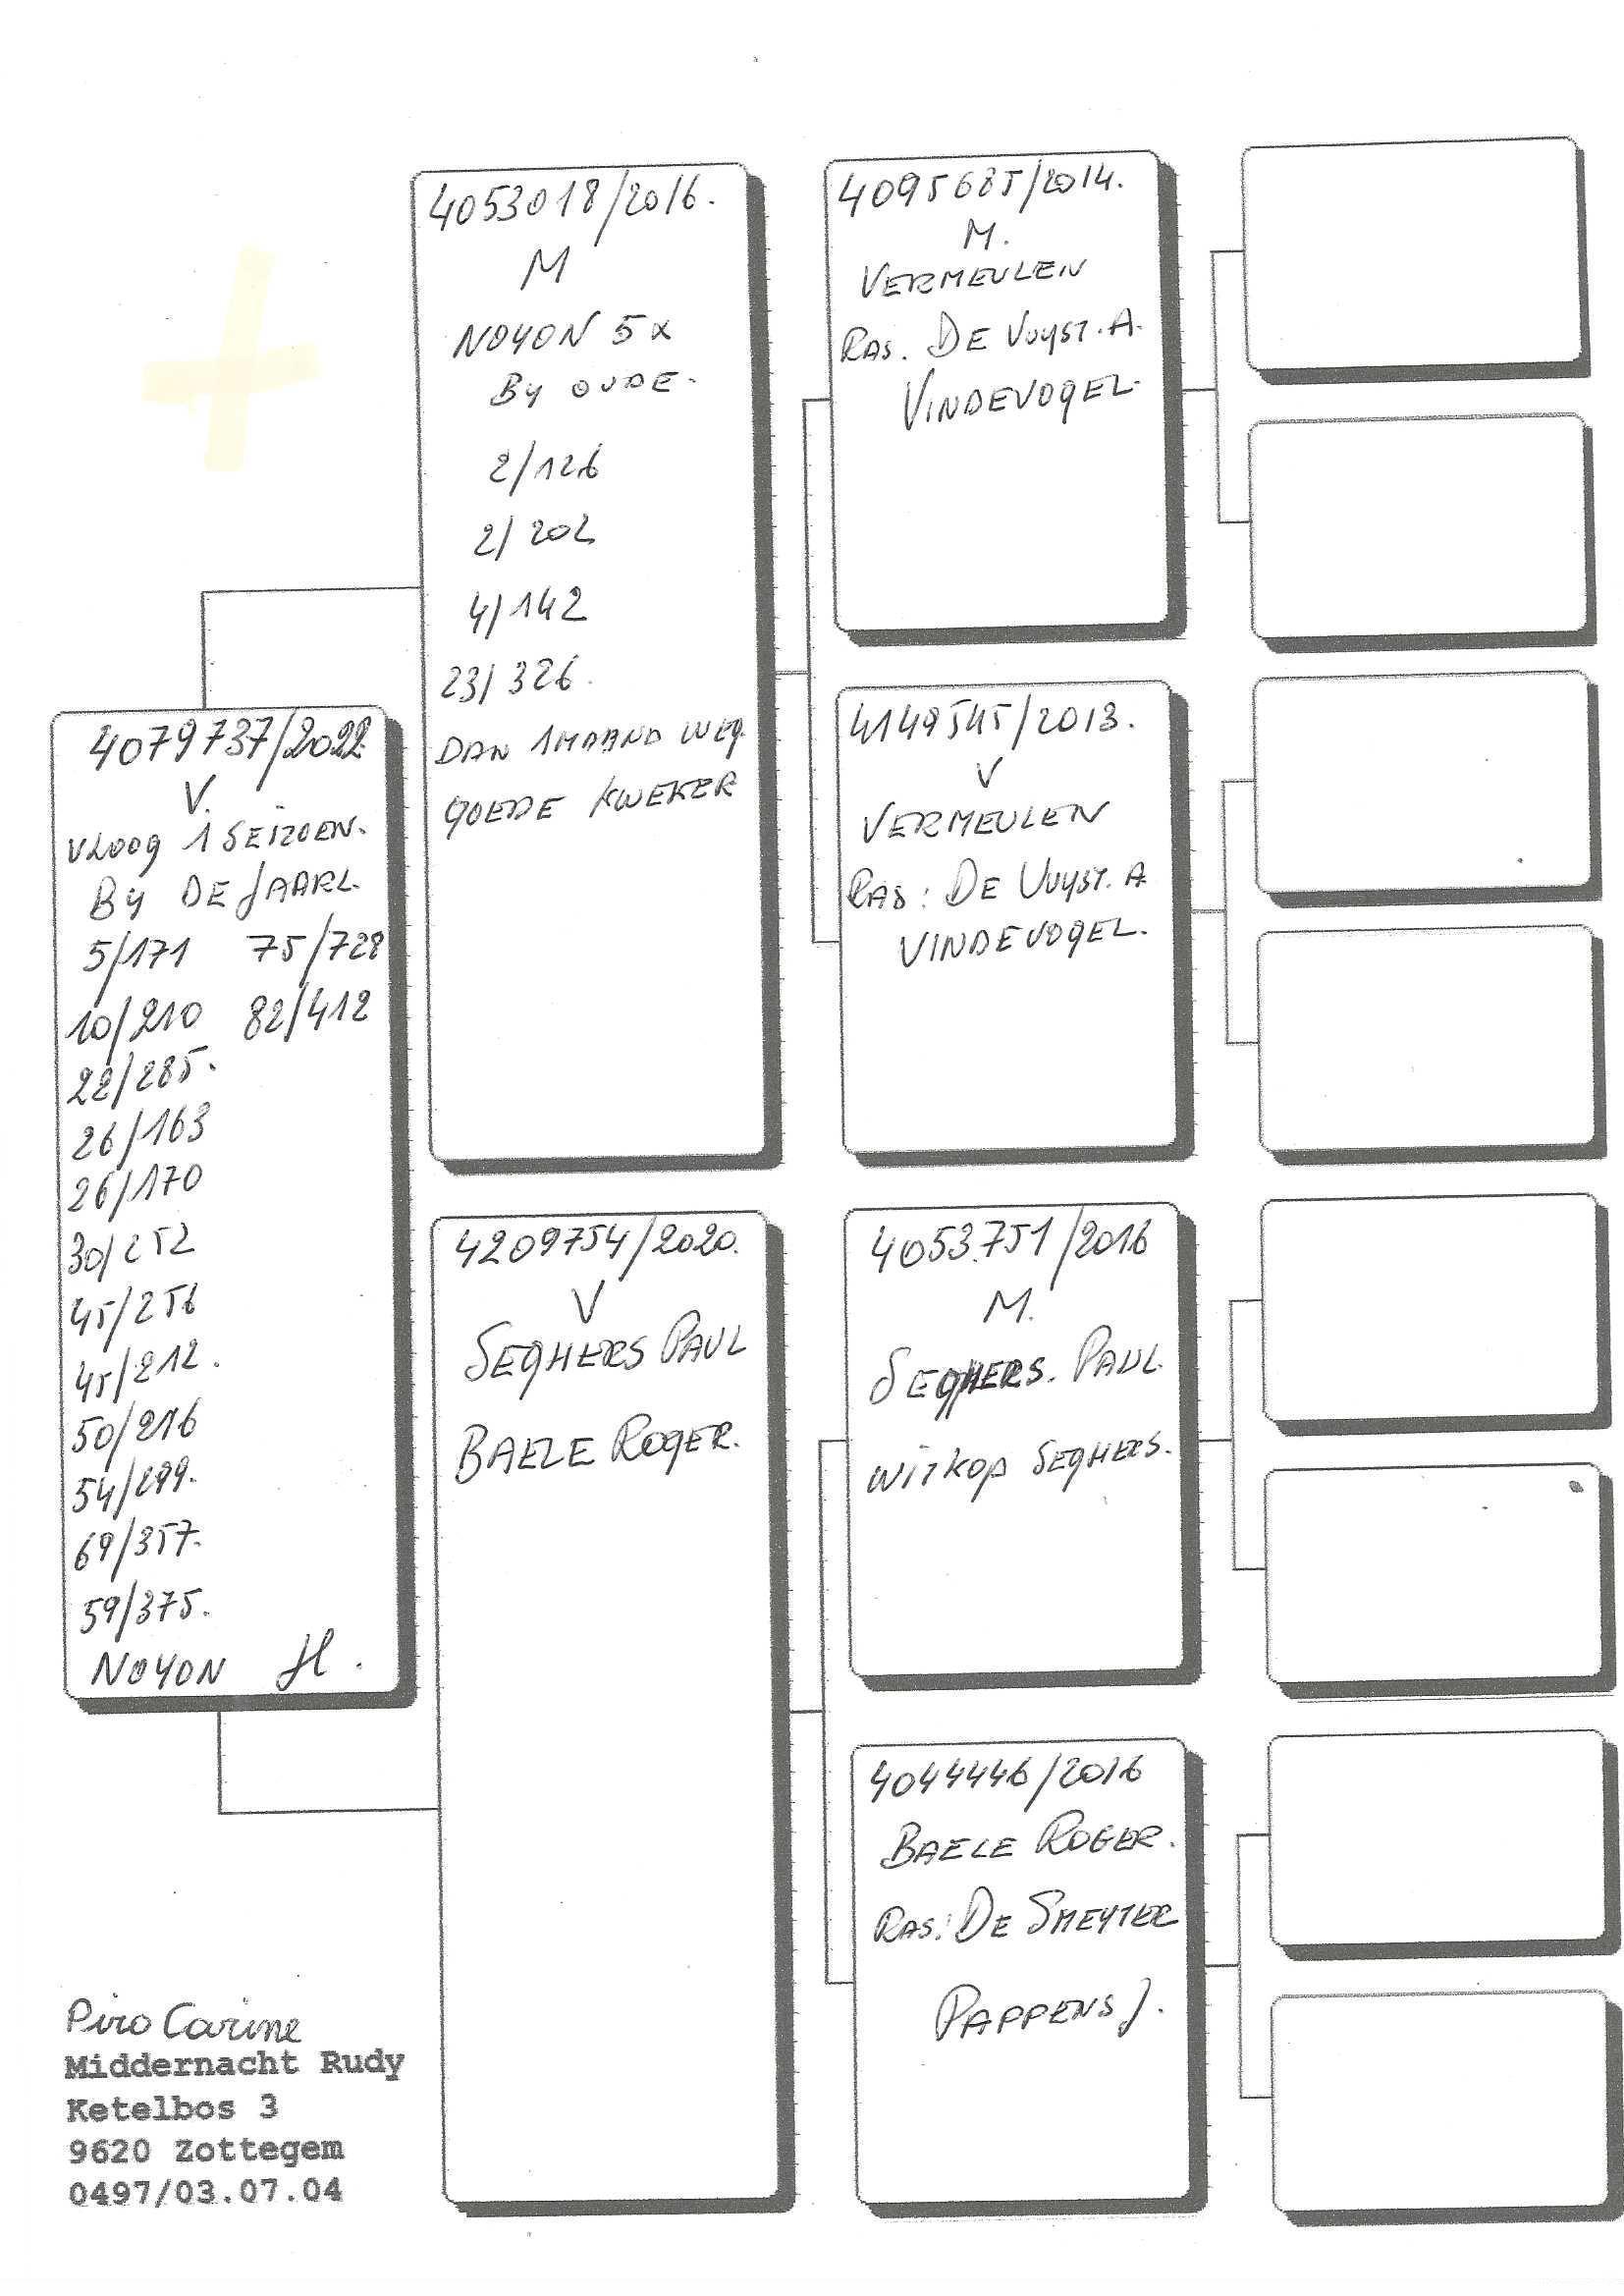 4079737/2022
V.
VLOOG 1 SEIZOEN.
BY DE JAARL.
5/171 75/728
10/210 82/412
22/285.
26/163
26/170
30/252
45/256
45/212.
50/216
54/299.
69/357.
59/375.
NOYON JL.
4053018/2016.
M
NOYON 5x
BY OUDE.
2/126
2/202
4/142
23/326.
DAN 1 MAAND WEG.
GOEDE KWEKER
4209754/2020.
V
SEGHERS PAUL
BAELE ROGER.
4095685/2014.
M.
VERMEULEN
RAS. DE VUYST. A.
VINDEVOGEL.
4149545/2013.
V
VERMEULEN
RAS: DE VUYST. A
VINDEVOGEL.
4053.751/2016
M.
SEGHERS. PAUL
WITKOP SEGHERS.
4044446/2016
BAELE ROGER.
RAS: DE SMEYTER
PAPPENS J.
Piro Carine
Middernacht Rudy
Ketelbos 3
9620 Zottegem
0497/03.07.04